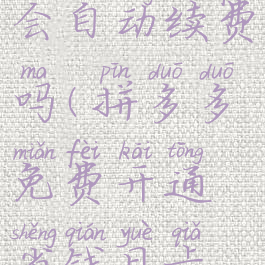 会自动续费
ma pīn duō duō
吗(拼多多
miǎn fèi kāi tōng
免费开通
shěng qián yuè qiǎ
省钱月卡